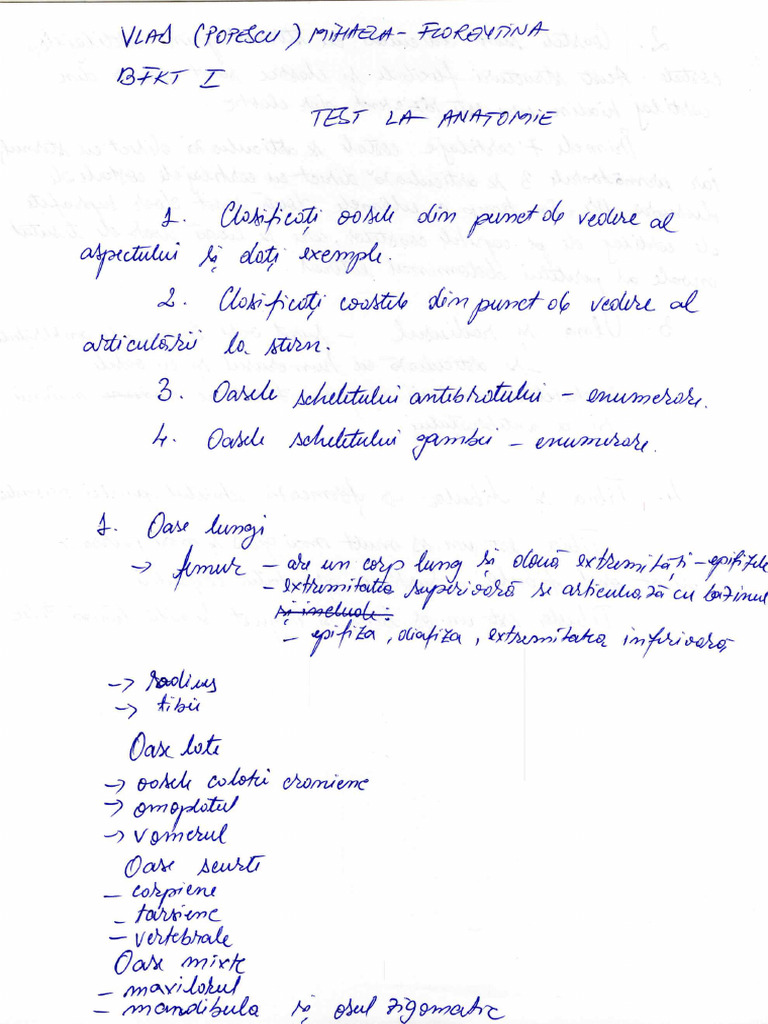 VLAD (POPESCU) MIHAELA-FLORENTINA
BFKT I
TEST LA ANATOMIE
1. Clasificați oasele din punct de vedere al
aspectului și dați exemple.
2. Clasificați coastele din punct de vedere al
articulării la stern.
3. Oasele scheletului antibrațului – enumerare.
4. Oasele scheletului gambei – enumerare.
1. Oase lungi
→ femur – are un corp lung și două extremități – epifizele
– extremitatea superioară se articulează cu bazinul
și include:
– epifiza, diafiza, extremitatea inferioară
→ radius
→ tibie
Oase late
→ oasele calotei craniene
→ omoplatul
→ vomerul
Oase scurte
– carpiene
– tarsiene
– vertebrale
Oase mixte
– maxilarul
– mandibula și osul zigomatic